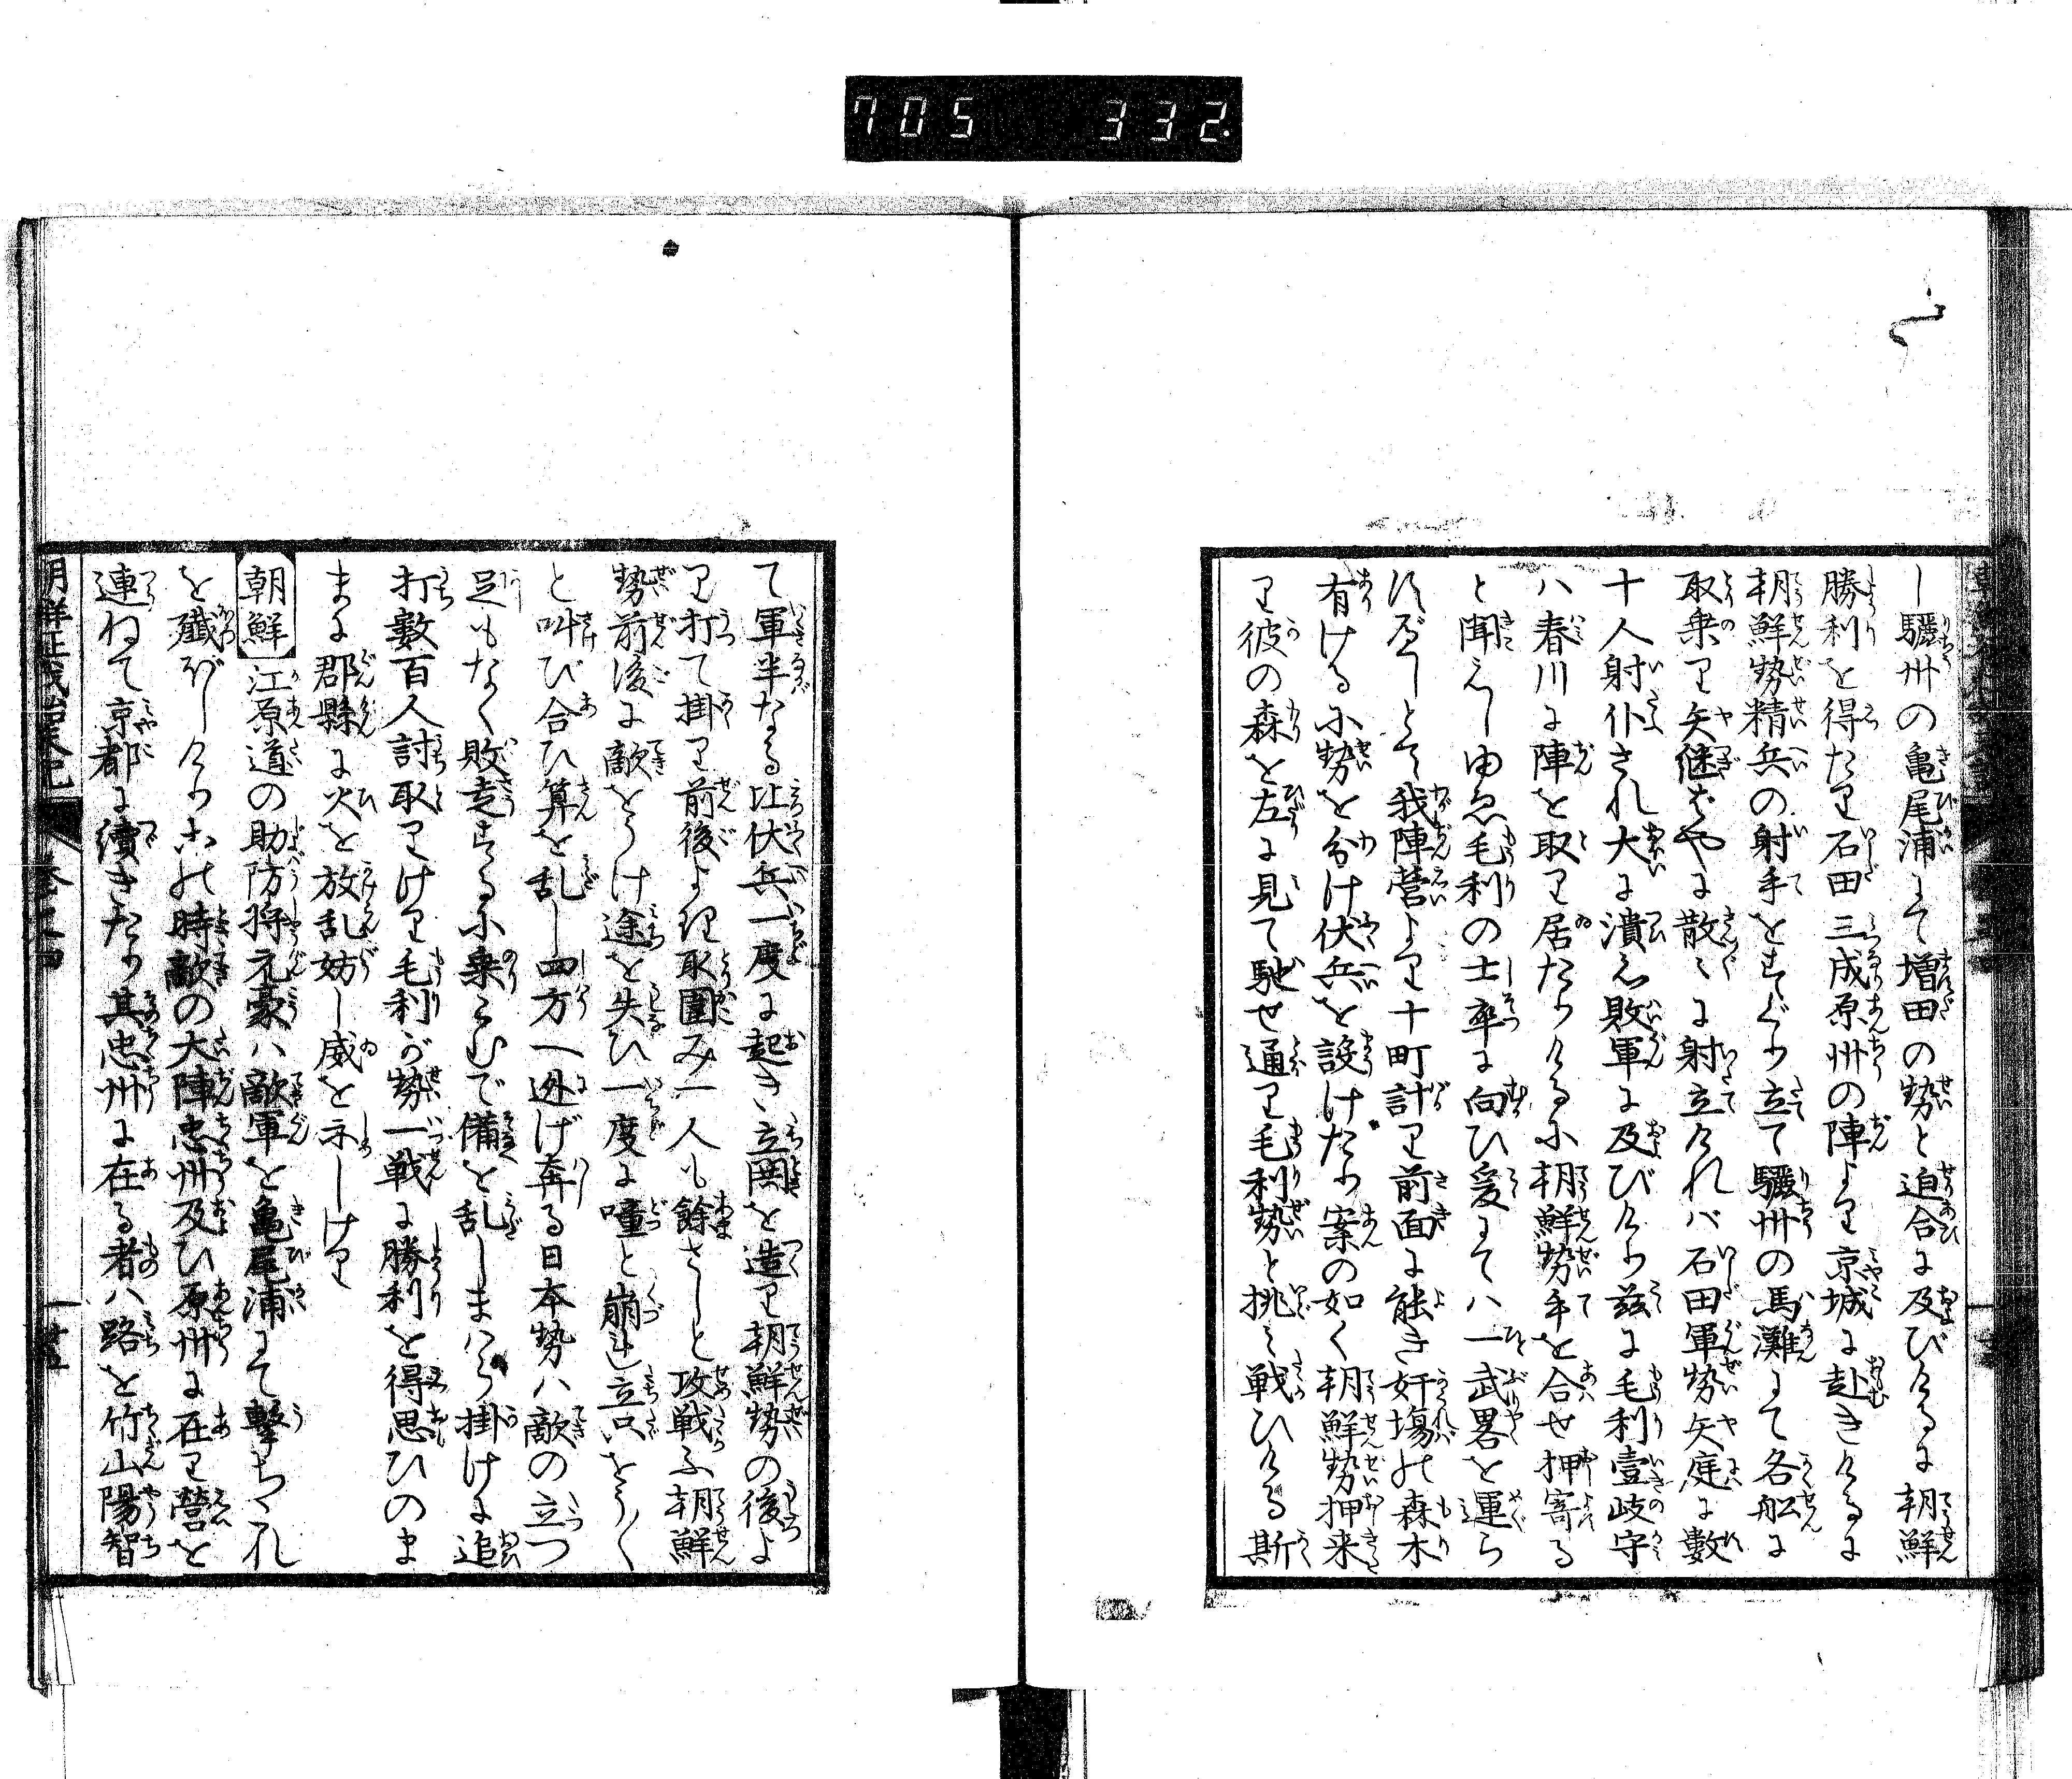 705 332.
し驪州の亀尾浦にて増田の勢と迫合に及びけるに朝鮮
勝利を得たり石田三成原州の陣より京城に赴きけるに
朝鮮勢精兵の射手をすぐり立て驪州の馬灘にて各舩に
取乗り矢継ばやに散〻に射立けれバ石田軍勢矢庭に數
十人射仆され大に潰え敗軍に及びけり茲に毛利壹岐守
ハ春川に陣を取り居たりけるに朝鮮勢手を合せ押寄る
と聞えしゆゑ毛利の士卒に向ひ爰にてハ一武畧を運ら
すべしとて我陣営より十町計り前面に能き奸塲の森木
有けるに勢を分け伏兵を設けたり案の如く朝鮮勢押来
り彼の森を左に見て馳せ通り毛利勢と挑み戦ひける斯
て軍半なる比伏兵一度に起き立鬨を造り朝鮮勢の後よ
り打て掛り前後より取圍み一人も餘さじと攻戦ふ朝鮮
勢前後に敵をうけ途を失ひ一度に噇と崩れ立只をう〱
と叫び合ひ算を乱し四方へ迯げ奔る日本勢ハ敵の立つ
足もなく敗走するに乗こむで備を乱しまつしくら掛けに追
打數百人討取りけり毛利が勢一戦に勝利を得思ひのま
まに郡縣に火を放乱妨し威を示しけり
朝鮮江原道の助防将元豪ハ敵軍を亀尾浦にて撃ちこれ
を殲ぼしけりこの時敵の大陣忠州及ひ原州に在り營を
連ねて京都に續きたり其忠州に在る者ハ路を竹山陽智